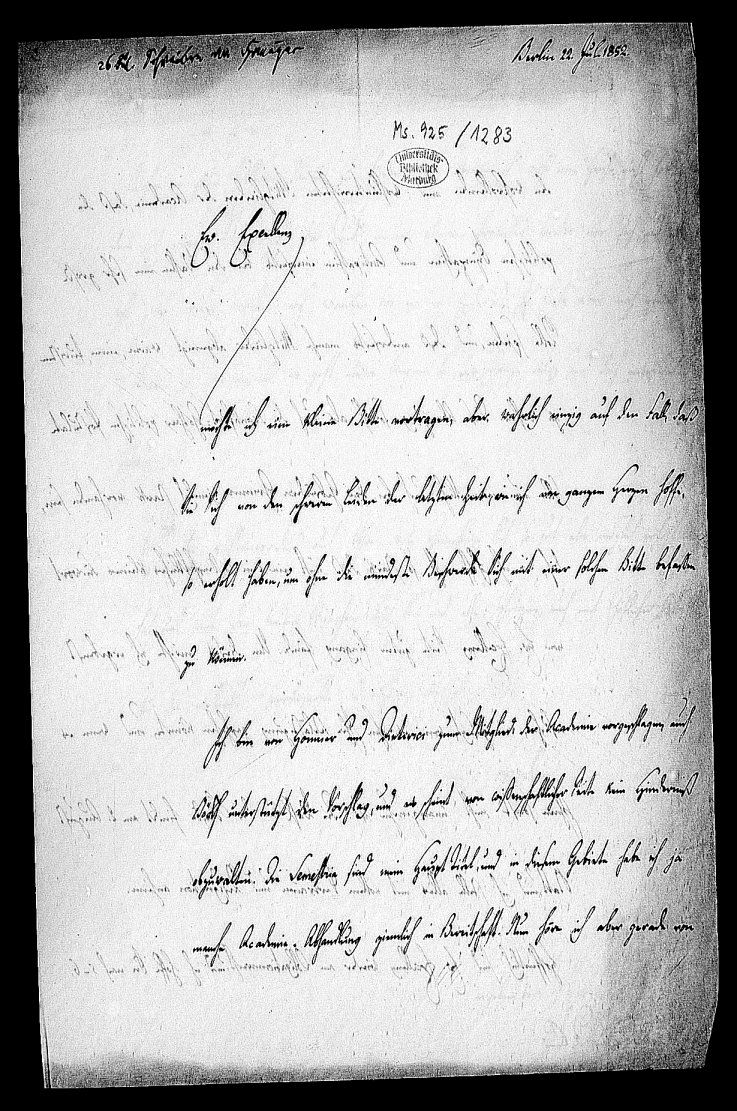 Berlin 22 Jul. 1852
Ms. 925/1283
Universitäts-
Bibliothek
Marburg
Ew. Excellenz
möchte ich eine kleine Bitte vortragen, aber wahrlich einzig auf den Fall, daß
Sie Sich von den schweren Leiden der letzten Zeit, wie ich von ganzem Herzen hoffe,
so erholt haben, um ohne die mindeste Beschwerde Sich mit einer solchen Bitte befassen
zu können.
Ich bin von Homeyer und zum Mitglied der Academie vorgeschlagen, auch
unterstützt den Vorschlag, und es scheint von wissenschaftlicher Seite kein Hinderniß
obzuwalten. Die sind mein Haupt Titel, und in diesem Gebiete habe ich ja
manche Academie-Abhandlung ziemlich in Bereitschaft. Nun höre ich aber gerade von